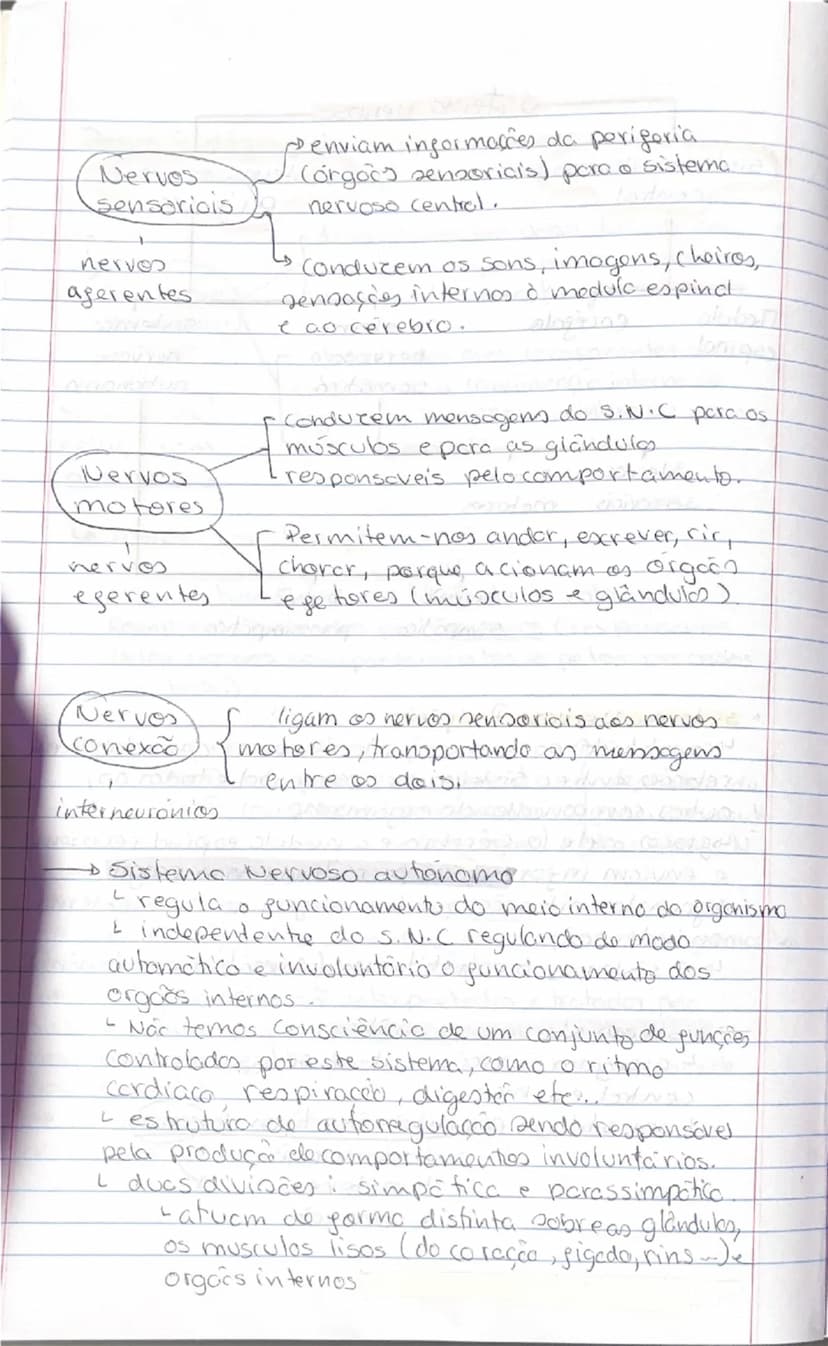 Nervos
sensoriais
nervos
aferentes
→ enviam informações da periferia
(órgãos sensoriais) para o sistema
nervoso central.
↳ Conduzem os sons, imagens, cheiros,
sensações internas à medula espinal
e ao cérebro.
Nervos
motores
nervos
eferentes
conduzem mensagens do S.N.C para os
músculos e para as glândulas
responsáveis pelo comportamento.
Permitem-nos andar, escrever, rir,
chorar, porque acionam os órgãos
efetores (músculos e glândulas)
Nervos
conexão
interneurónios
ligam os nervos sensoriais aos nervos
motores, transportando as mensagens
entre os dois.
→ Sistema Nervoso autónomo
└ regula o funcionamento do meio interno do organismo
└ independente do S.N.C regulando de modo
automático e involuntário o funcionamento dos
orgãos internos.
└ Não temos Consciência de um conjunto de funções
controladas por este sistema, como o ritmo
cardíaco, respiração, digestão etc...
└ estrutura de autorregulação sendo responsável
pela produção de comportamentos involuntários.
└ duas divisões: simpática e parassimpática.
└ atuam de forma distinta sobre as glândulas,
os musculos lisos (do coração, fígado, rins...) e
orgãos internos